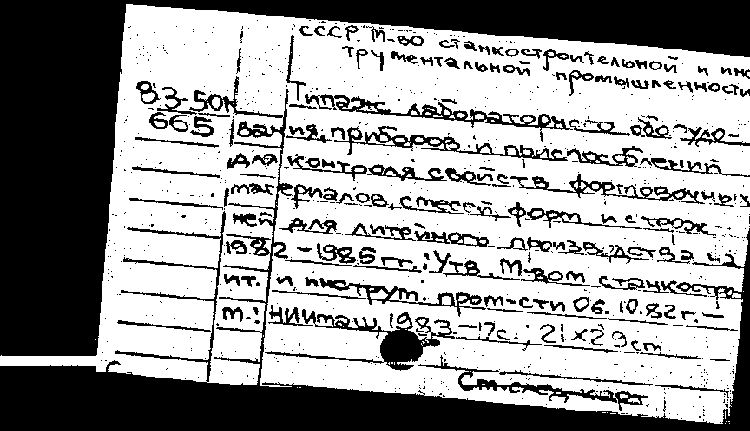 СССР. М-во станкостроительной и инс
трументальной промышленности
83-50к Типаж лабораторного оборудо-
665 вания, приборов и приспособлений
для контроля свойств формовочных
материалов, смесей, форм и стерж-
ней для литейного производства на
1982-1985 гг.: Утв. М-вом станкостро
ит. и инструт. пром-сти 06.10.82 г. —
М.: НИИмаш, 1983. -17с.; 21×29см
См. след. карт.